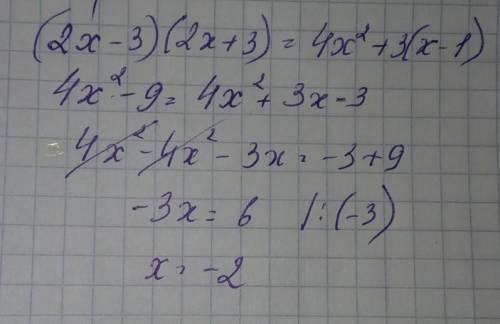 (2x-3)(2x+3) = 4x²+3(x-1)
4x²-9 = 4x²+3x-3
4x²-4x²-3x = -3+9
-3x = 6 |:(-3)
x = -2